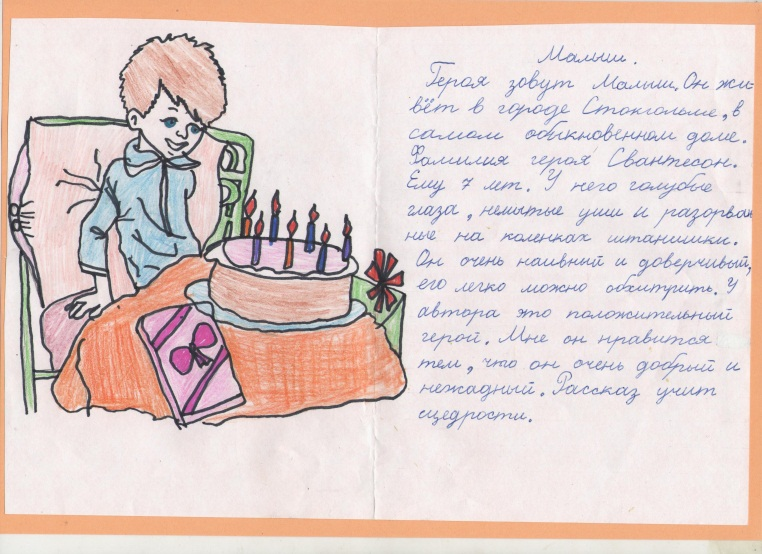 Малыш.
Героя зовут Малыш. Он жи-
вёт в городе Стокгольме, в
самом обыкновенном доме.
Фамилия героя Свантесон.
Ему 7 лет. У него голубые
глаза, немытые уши и разорван
ные на коленках штанишки.
Он очень наивный и доверчивый,
его легко можно обхитрить. У
автора это положительный
герой. Мне он нравится
тем, что он очень добрый и
нежадный. Рассказ учит
щедрости.